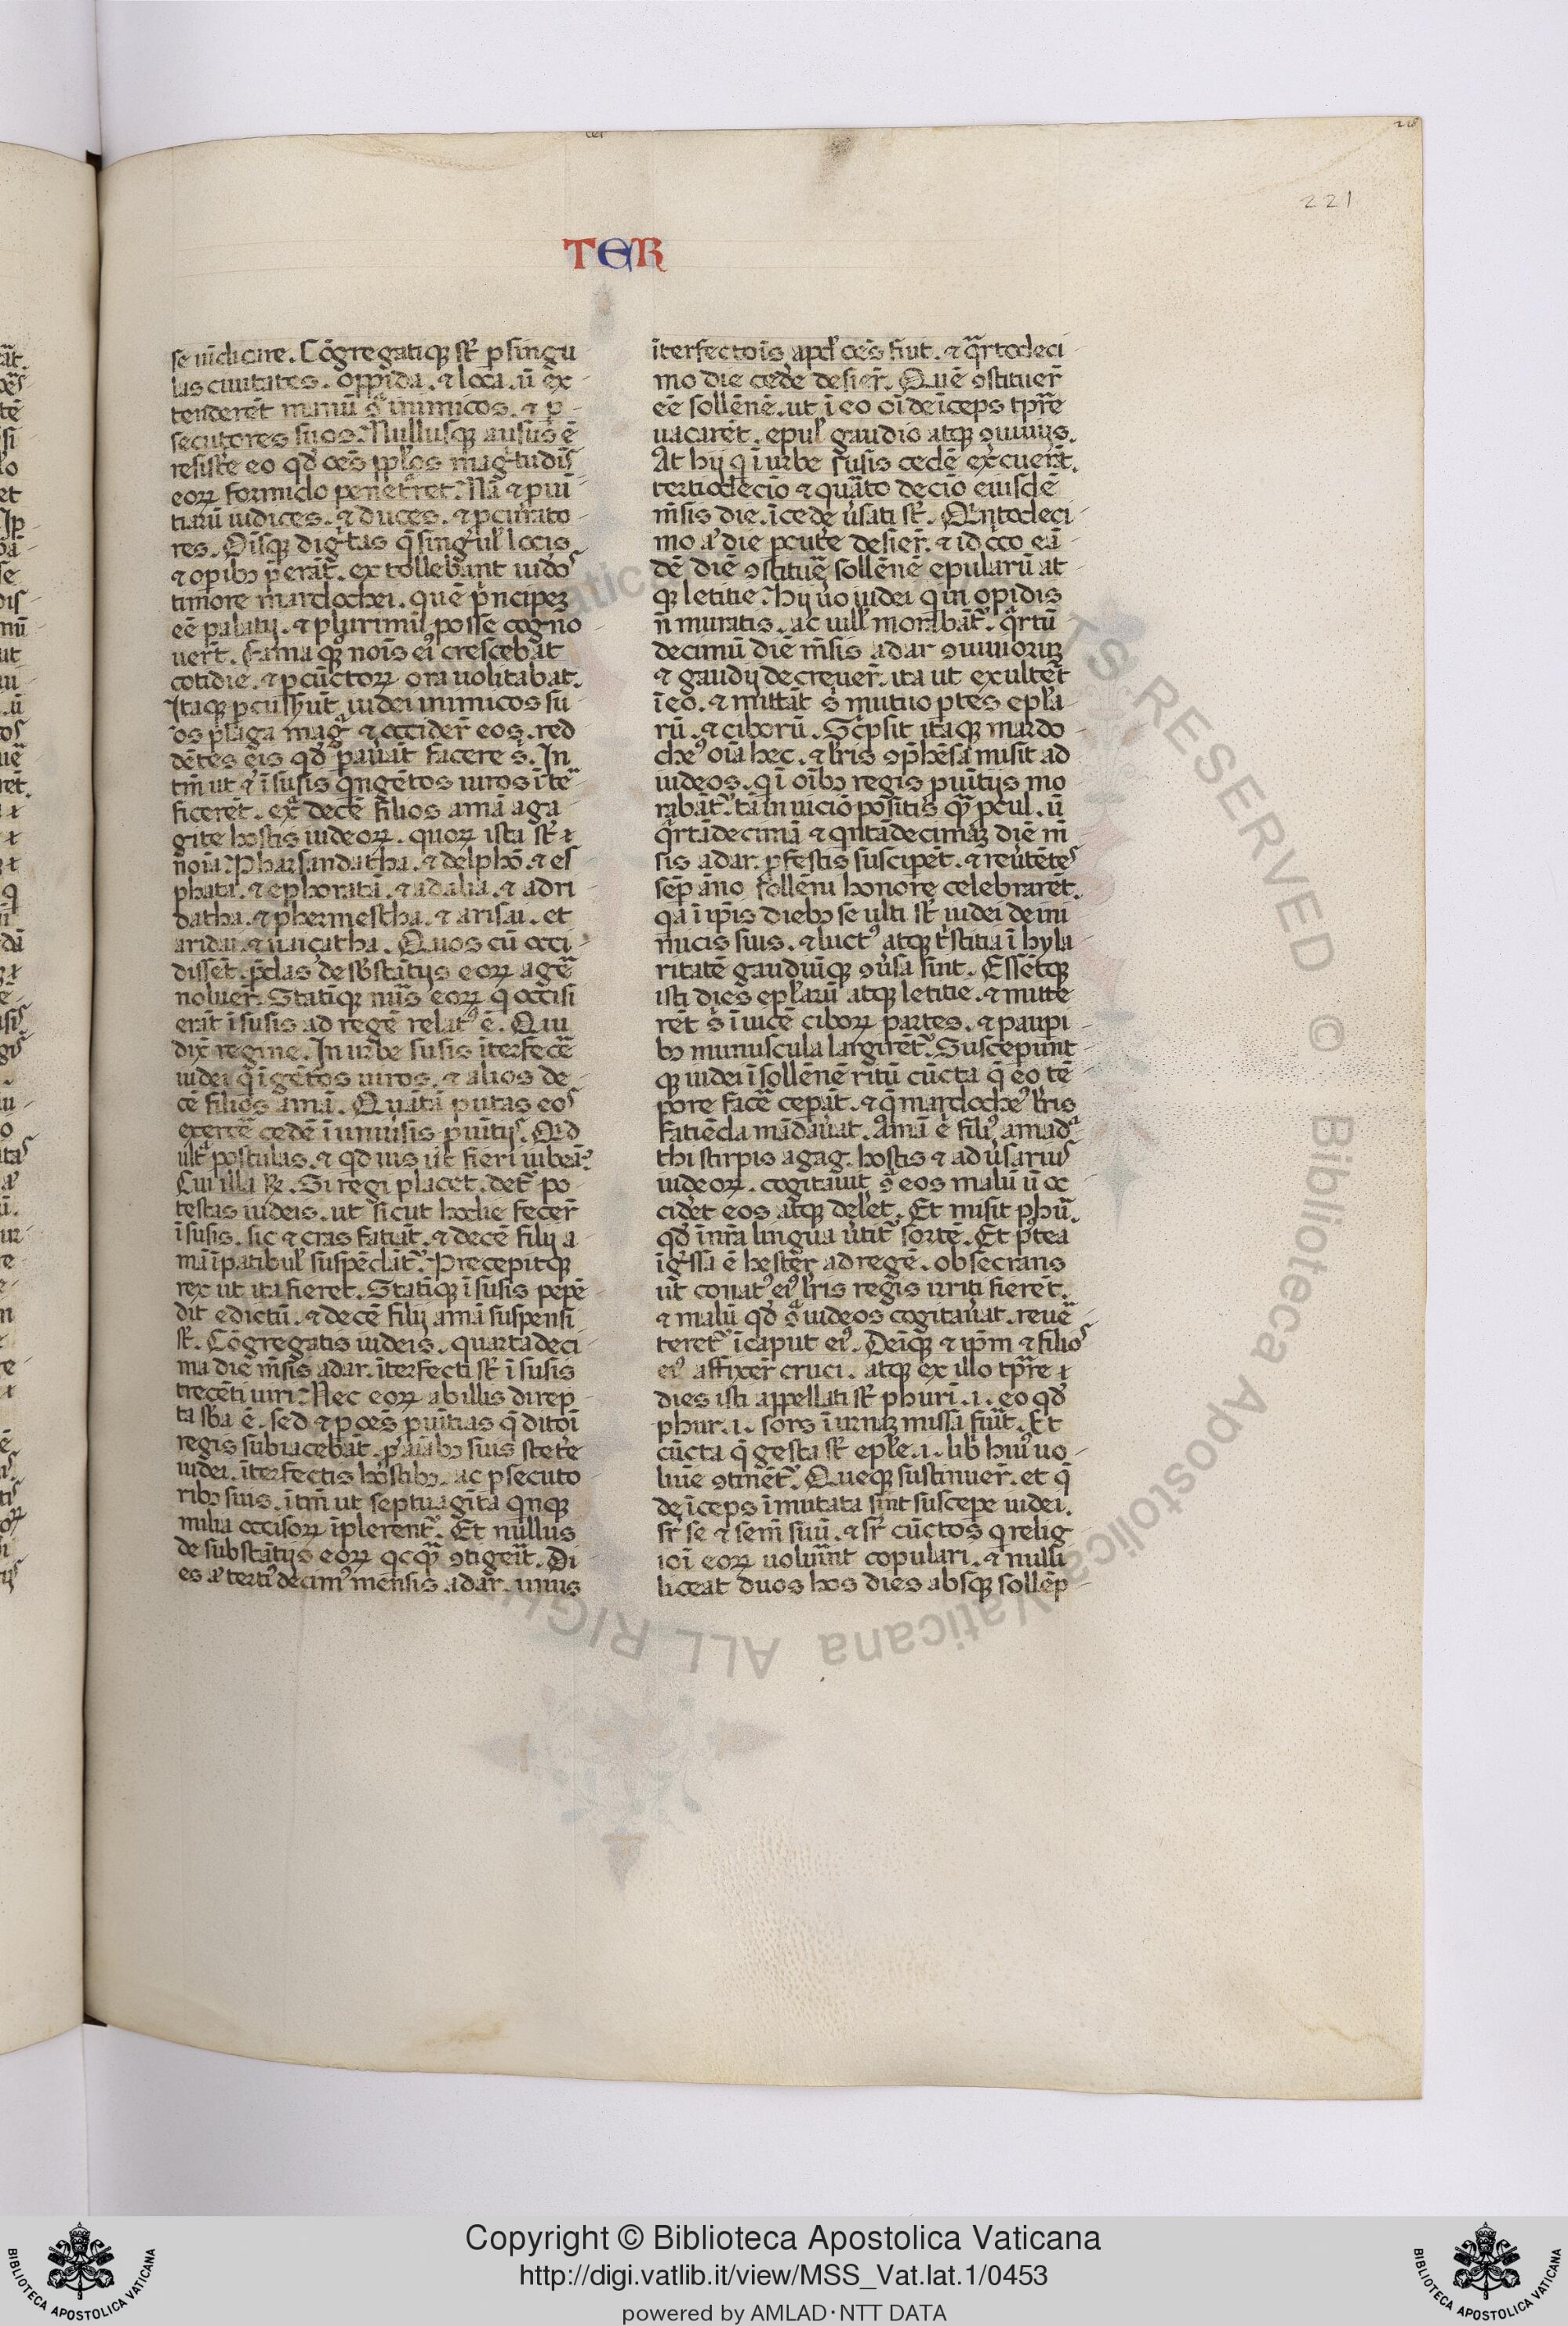 221
TER
se uīdicare. Cōgregatiq; st̄ p singu
las ciuitates. oppida. ⁊ loca. ū ex
tenderēt manū ꝯ inimicos. ⁊ p
secutores suos. Nullusq; ausus ē
resist'e eo qd' oēs ppl'os mag'tudīs
eoꝝ formido penet'ret. Nā ⁊ puī
tiarū iudices. ⁊ duces. ⁊ pcurato
res. Oīsq; dig'tas q̄ singul' locis
⁊ opibꝫ p̄erāt. extollebant iud'os
timore mardochei. quē p'ncipeꝫ
eē palatij. ⁊ plurimū posse cogno
uer̄t. Fama q; noīs ei' crescebat
cotidie. ⁊ p cūctoꝝ ora uolitabat.
Itaq; pcusser̄ūt iudei inimicos su
os plaga mag^a ⁊ occider̄ eos. red
dētes eis qd' pauāt facere s'. In
tm̄ ut ⁊ ī susis q'ngētos uiros īte
ficerēt. ex^a decē filios amā aga
gite hostis iudeoꝝ. quoꝝ ista st̄ ⁊
noīa. Pharsandatha. ⁊ delphō. ⁊ es
phata. ⁊ ephorata. ⁊ adalia. ⁊ adri
datha. ⁊ phermestha. ⁊ arisai. et
aridai. ⁊ uaiçatha. Quos cū occi
dissēt. p̄das de sb'stātijs eoꝝ ag'e
noluer̄. Statiq; nūs eoꝝ q' occisi
erāt ī susis ad regē relat' ē. Qui
dix̄ regine. In urbe susis īterfecē
iudei q'īgētos uiros. ⁊ alios de
cē filios amā. Quātā putas eos
exercē cedē ī uniuīsis puītijs. Qd
ult^a postulas. ⁊ qd uis ut fieri iubeā.
Cui illa R̄. Si regi placet. det' po
testas iudeis. ut sicut hodie fecer̄
ī susis. sic ⁊ cras fatiāt. ⁊ decē filij a
mā ī patibul' suspēdāt'. Precepitq;
rex ut ita fieret. Statiq; ī susis pepē
dit edictū. ⁊ decē filij amā suspensi
st̄. Cōgregatis iudeis. quartadeci
ma die m̄sis adar. īterfecti st̄ ī susis
trecēti uiri. Nec eoꝝ ab illis direp
ta sb'a ē. sed ⁊ p oēs puītias q̄ ditoī
regis subiacebāt. p aīabꝫ suis stet'e
iudei. īterfectis hostibꝫ. ac psecuto
ribꝫ suis. ītm̄ ut septuagīta qnq;
milia occisoꝝ īplerent'. Et nullus
de substātijs eoꝝ qcq^a ꝯtigeūt. Di
es a' terti' decim' mensis adar. unus
īterfectoīs apd' oēs fiut. ⁊ q^artodeci
mo die cede desier̄. Quē ꝯstituer̄
eē sollēnē. ut ī eo oī deīceps tpr̄e
uacarēt. epul' gaudio atq; ꝯuiuijs.
At hij q' ī urbe susis cedē ex'cuer̄t.
tertiodecīo ⁊ quāto decīo eiusdē
m̄sis die. ī cede u'sati st̄. Q'ntodeci
mo a' die pcut'e desier̄. ⁊ idcco eā
dē diē ꝯstituē sollēnē epularū at
q; letitie. Hij u'o iudei q' in opidis
n̄ muratis. ac uill' morabāt'. q^artū
decimū diē m̄sis adar ꝯuiuioruꝫ
⁊ gaudij decreuer̄. ita ut exultēt
ī eo. ⁊ mittāt s' mutuo ptes epl'a
rū. ⁊ ciborū. Sc'psit itaq; mardo
che' oīa hec. ⁊ l'ris ꝯp̄hēsa misit ad
iudeos. q' ī oībꝫ regis puītijs mo
rabāt'. tā in uiciō positis q^a pcul. ū
q^artādecimā ⁊ q'ntādecimaꝫ diē m̄
sis adar. p festis suscipet. ⁊ reu'tētes
sēp āno sollēni honore celebrarēt.
qa ī ip̄is diebꝫ se ulti st̄ iudei de ini
micis suis. ⁊ luct' atq; t'stitia ī hyla
ritatē gaudiūq; ꝯu'sa sint. Essētq;
isti dies epl'arū atq; letitie. ⁊ mitte
rēt s' īuicē ciboꝝ partes. ⁊ paupi
bꝫ munuscula largirēt'. Susceperunt
q; iudei ī sollēnē ritū cūcta q̄ eo tē
pore facē cepāt. ⁊ q̄ mardoche' l'ris
fatiēda mādau'at. Amā ē fili' amad^a
thi stirpis agag. hostis ⁊ adu'sarius
iudeoꝝ. cogitauit ꝯ eos malū ū oc
cid'et eos atq; del'et. Et misit phū.
qd' ī nr̄a lingua u'tit' sortē. Et p'tea
īg'ssa ē hester ad regē. obsecrans
ut conat' ei' l'ris regis irriti fierēt.
⁊ malū qd' ꝯ iudeos cogitau'at. reuē
teret' ī caput ei'. Deīq; ⁊ ip̄m ⁊ filios
ei' affixer̄ cruci. atq; ex illo tpr̄e ⁊
dies isti appellati st̄ phurī. i. eo qd'
phur. i. sors ī urnaꝫ missa fu'it. Et
cūcta q̄ gesta st̄ epl'e. i. lib' hui' uo
luīe ꝯtinēt'. Queq; sustinuer̄. et q̄
deīceps īmutata sint suscepe iudei.
sr̄ se ⁊ sem̄ suū. ⁊ sr̄ cūctos q' relig
ioī eoꝝ uoluīnt copulari. ⁊ nulli
liceat duos hos dies absq; sollēp
ALL RIGHTS RESERVED © Biblioteca Apostolica Vaticana
Copyright © Biblioteca Apostolica Vaticana
http://digi.vatlib.it/view/MSS_Vat.lat.1/0453
powered by AMLAD·NTT DATA
BIBLIOTECA APOSTOLICA VATICANA
BIBLIOTECA APOSTOLICA VATICANA